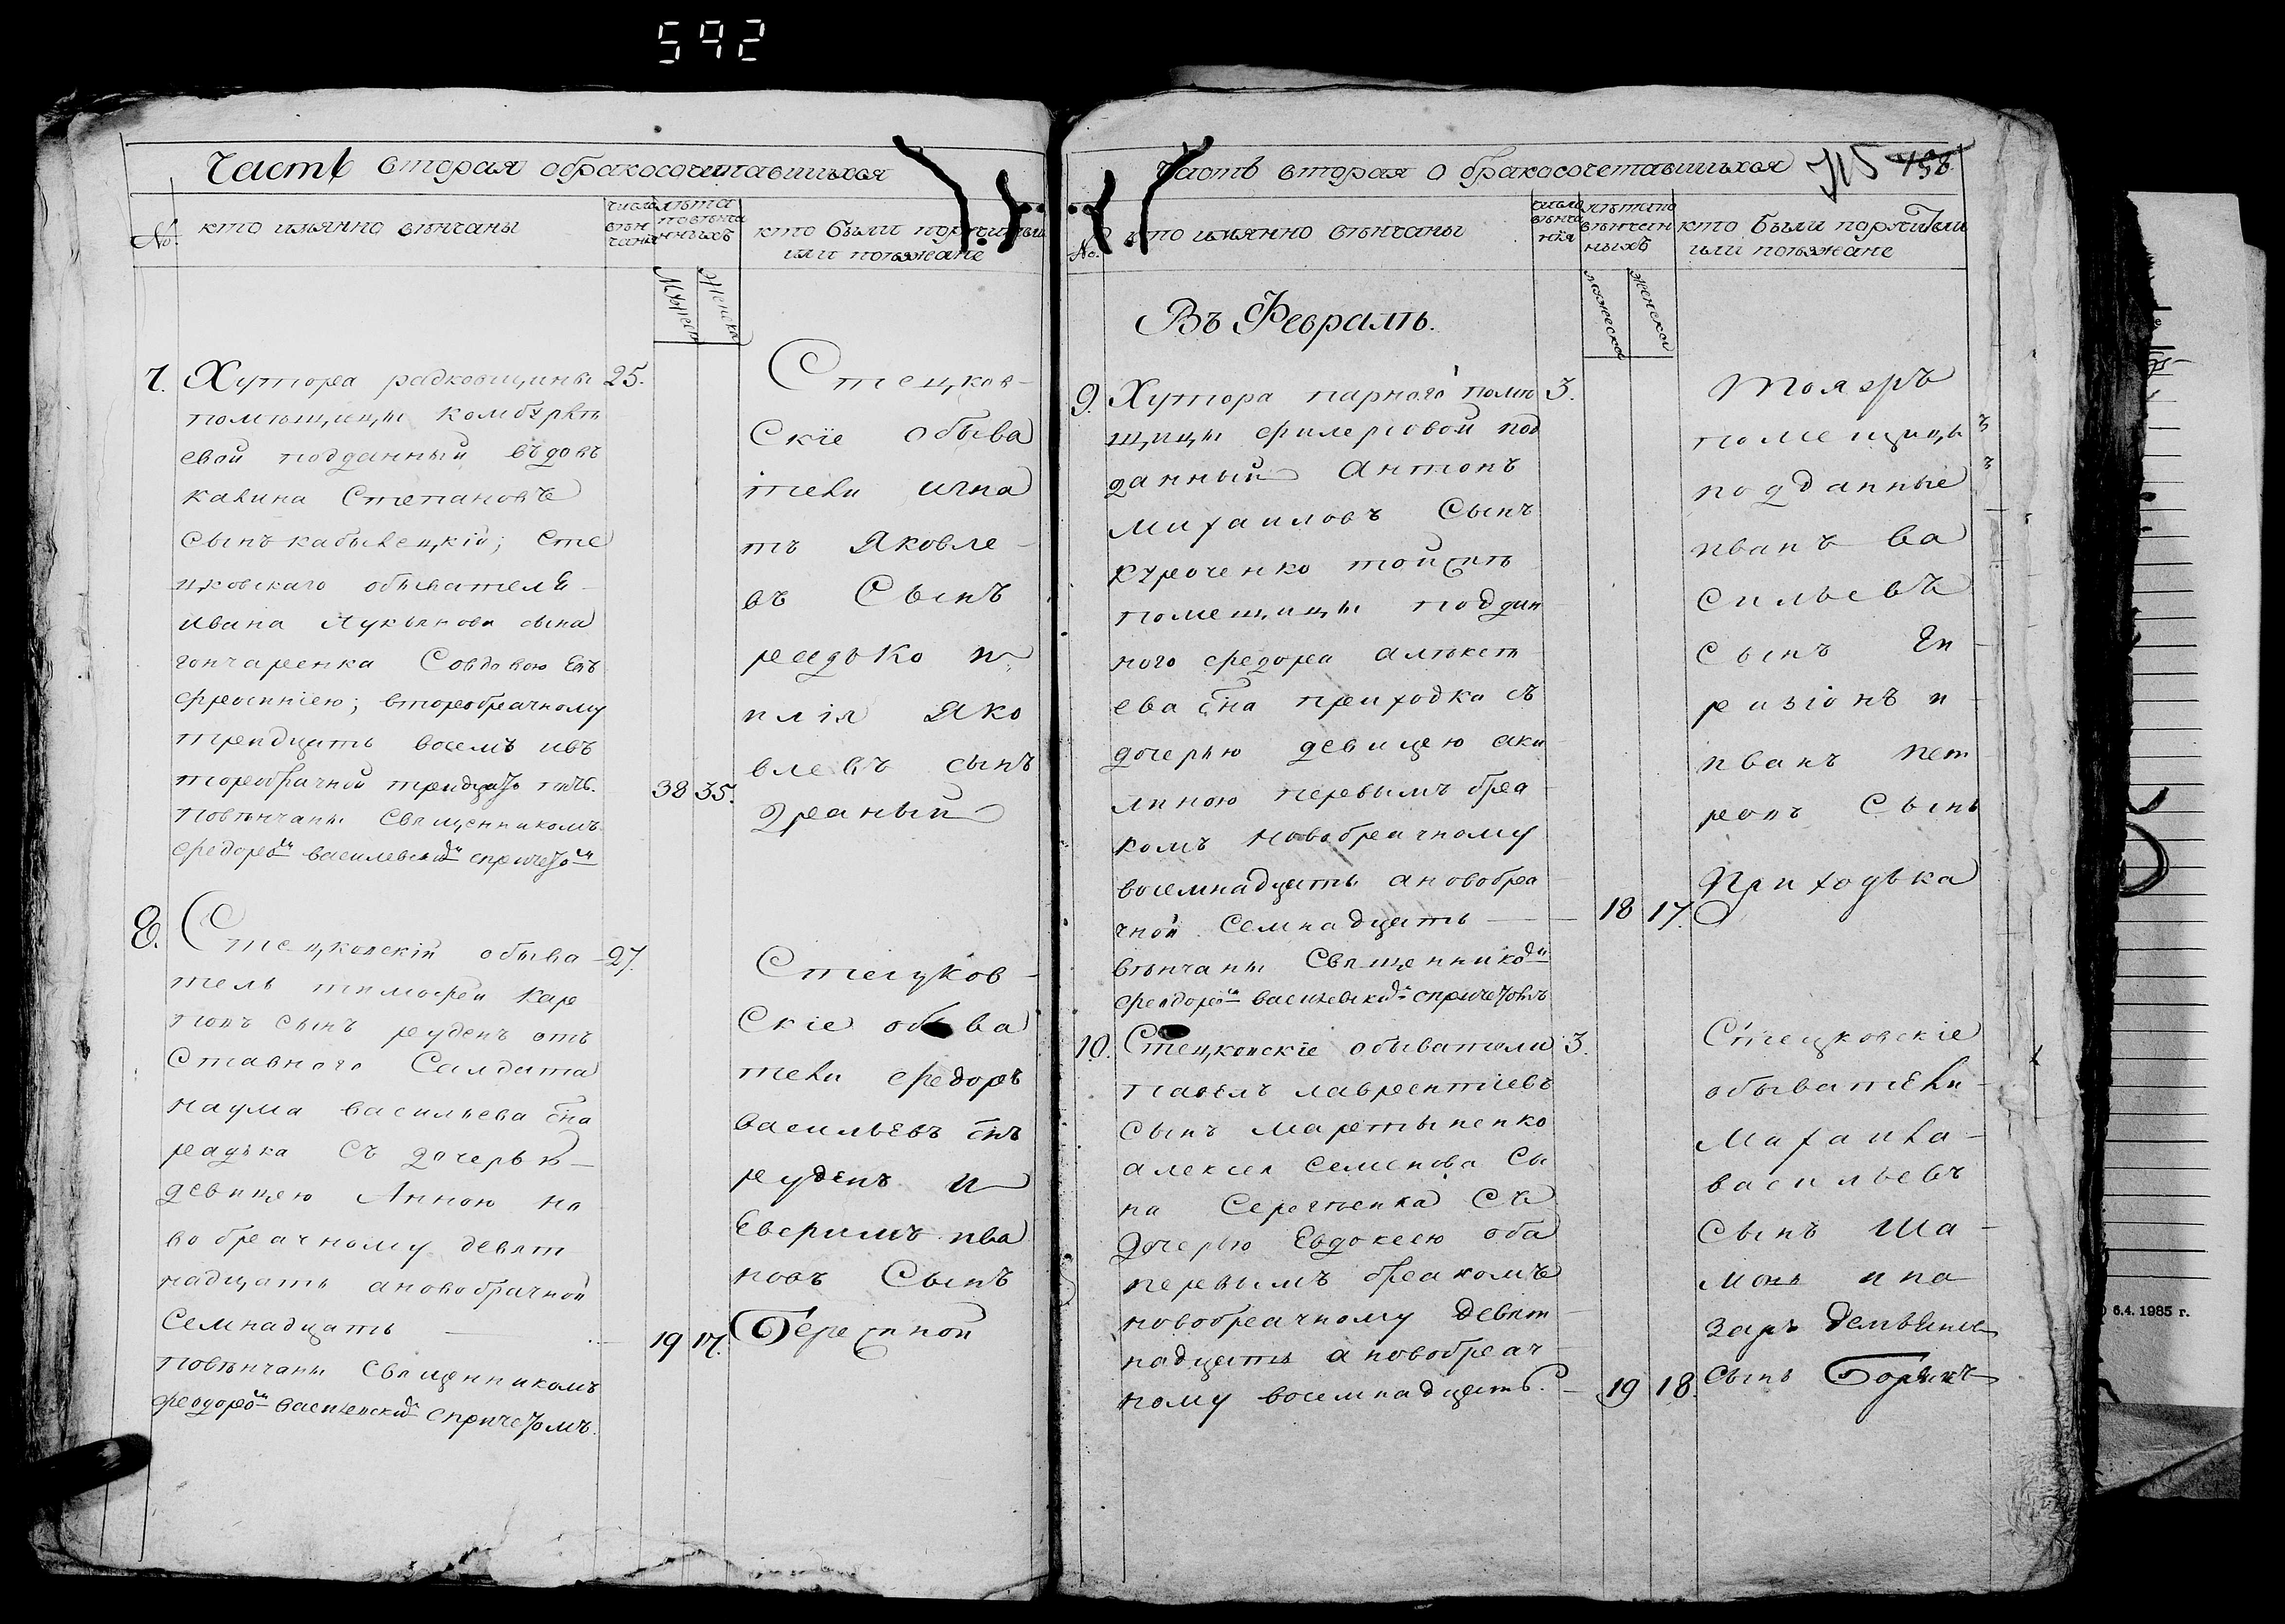 592
Часть вторая обракосочитавшихся
№
кто имянно венчаны
число
вѣн
чанія
лѣта
повѣнча
нныхъ
кто были поручители
или поѣзжане
Мужеск
Женска
7. Хутора радковщины 25.
помѣщицы
подданный вдовъ
Степановъ
Сынъ кабылецкій; Сте
цковскаго обывателя
ивана Лукьянова сына
гончаренка Совдовою Ев
фросиніею; второбрачному
тридцать восемъ ивъ
торобрачной тридцать пять. 38 35.
повѣнчаны Священникомъ
федоромъ василевскимъ спричетомъ
Стецков-
Скіе обыва
тели игна
тъ Яковле-
въ Сынъ
редько и
илія Яко
влевъ сынъ
8. Стецковскій обыва 27.
тель тимофеи Кар
повъ сынъ руденъ отъ
Ставного Салдата
наума васильева сна
радька съ дочерью
девицею Анною но
вобрачному девят
надцать ановобрачной
Семнадцать 19 17.
повѣнчаны Священникомъ
феодоромъ василевскимъ спричетомъ.
Стецков-
Скіе обыва
тели федоръ
васильевъ снъ
руденъ и
ива
новъ Сынъ
часть вторая о бракосочетавшихся 115 458
№
кто имянно вѣнчаны
число
вѣнча
нія
лѣта по
вѣнчан
ныхъ
кто были поручители
или поѣзжане
мужеска
женска
Въ Февралѣ.
9. Хутора парного помѣ 3.
щицы под
данный Антонъ
михаиловъ Сынъ
куроченко тойжъ
помещицы поддан
ного федора алѣксѣ
ева сна приходка съ
дочерью девицею аки
линою первымъ бра
комъ новобрачному
восемнадцать ановобра
чной Семнадцать 18 17.
вѣнчаны Священникомъ
феодоромъ василевскимъ спричетомъ
помещицы
подданные
иванъ ва
сильевъ
сынъ
и
иванъ пет
ровъ Сынъ
Приходька
10. Стецковскіе обыватели 3.
павелъ лаврентіевъ
сынъ мартыненко
алексея семенова сы
на Съ
дочерью Евдокеею оба
первымъ бракомъ
новобрачному девят
надцать а новобрач
ному восемнадцать. 19 18.
Стецковскіе
обыватели
Михаила
васильевъ
Сынъ Ша-
моня и на
заръ
сынъ
6.4.1985 г.